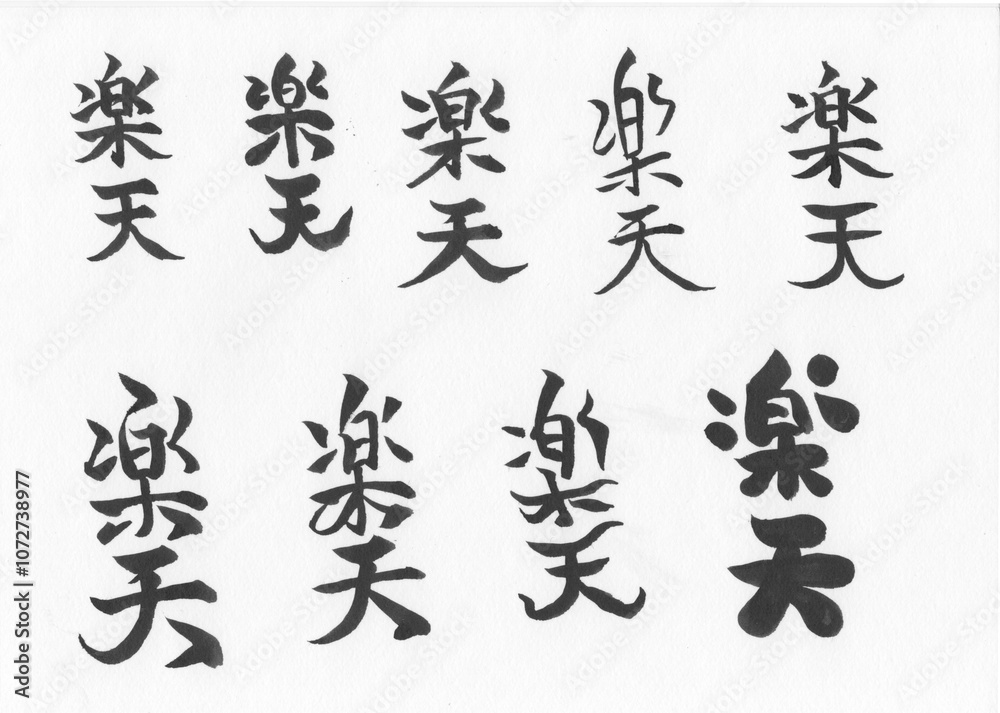 楽天 楽天 楽天 楽天 楽天
楽天 楽天 楽天 楽天
Adobe Stock | #1072738977